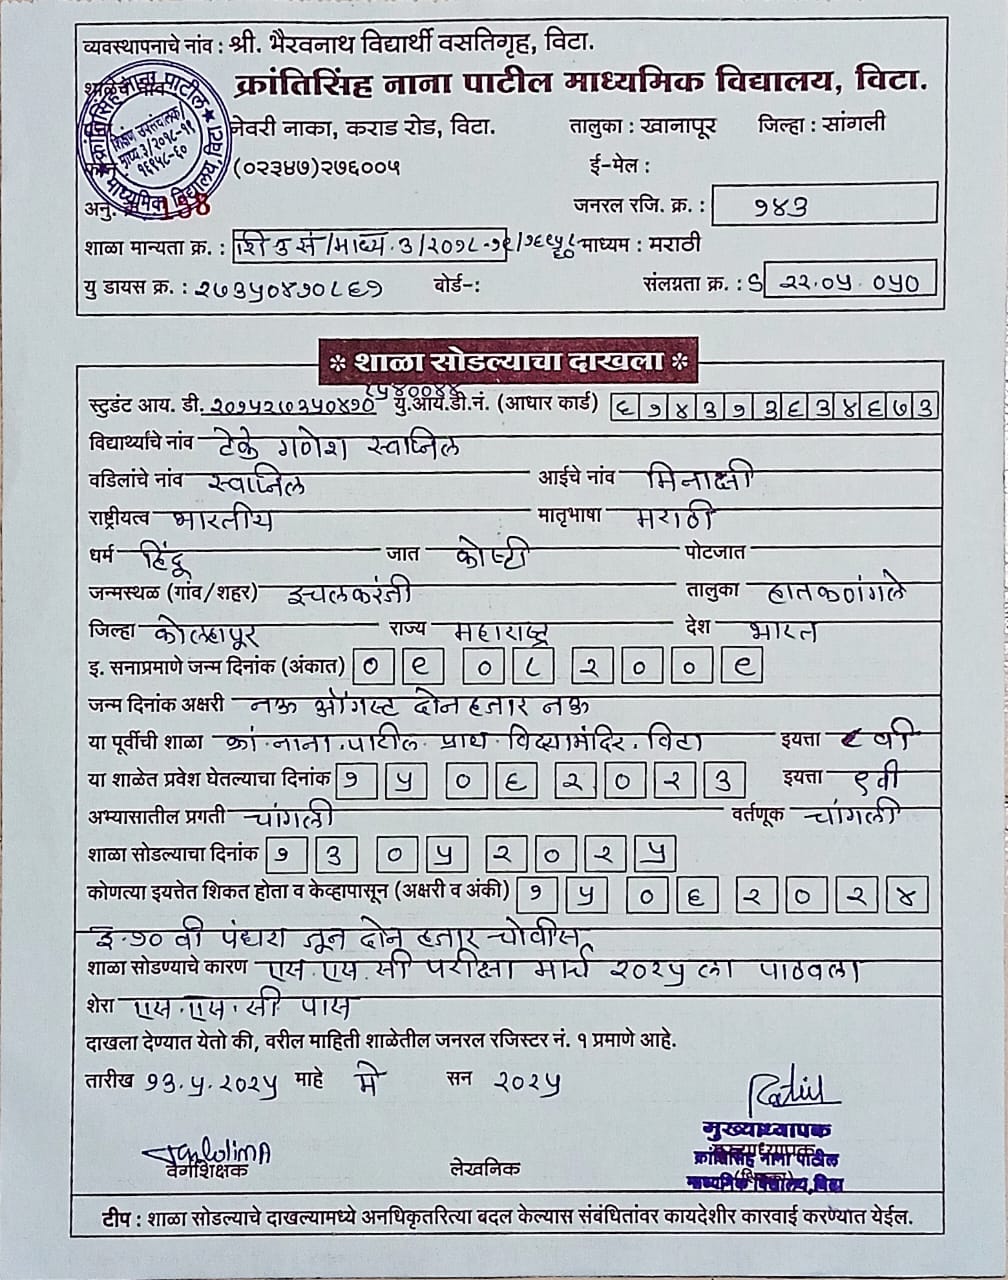 व्यवस्थापनाचे नांव : श्री. भैरवनाथ विद्यार्थी वसतिगृह, विटा.
क्रांतिसिंह नाना पाटील माध्यमिक विद्यालय, विटा.
नेवरी नाका, कराड रोड, विटा. तालुका : खानापूर जिल्हा : सांगली
(०२३४७)२७६००५ ई-मेल :
अनु. जनरल रजि. क्र. : १४३
शाळा मान्यता क्र. : शि उ सं/माध्य.३/२०१८-१९/१६९५८-६० माध्यम : मराठी
यु डायस क्र. : २७३५०४१०८६१ बोर्ड-: संलग्नता क्र. : S २२.०५.०५०
* शाळा सोडल्याचा दाखला *
स्टुडंट आय. डी. २०१५२७३५०४१० यु.आय.डी.नं. (आधार कार्ड) ६१४३१३६३४६७३
विद्यार्थ्यांचे नांव टेके गणेश स्वप्निल
वडिलांचे नांव स्वप्निल आईचे नांव मिनाक्षी
राष्ट्रीयत्व भारतीय मातृभाषा मराठी
धर्म हिंदू जात कोष्टी पोटजात
जन्मस्थळ (गांव/शहर) इचलकरंजी तालुका हातकणंगले
जिल्हा कोल्हापूर राज्य महाराष्ट्र देश भारत
इ. सनाप्रमाणे जन्म दिनांक (अंकात) ०९ ०८ २००९
जन्म दिनांक अक्षरी नऊ ऑगस्ट दोन हजार नऊ
या पूर्वीची शाळा क्रां.नाना.पाटील. प्राथ. विद्यामंदिर. विटा इयत्ता ८ वी
या शाळेत प्रवेश घेतल्याचा दिनांक १५ ०६ २०२३ इयत्ता ९वी
अभ्यासातील प्रगती चांगली वर्तणूक चांगली
शाळा सोडल्याचा दिनांक १३ ०५ २०२५
कोणत्या इयत्तेत शिकत होता व केव्हापासून (अक्षरी व अंकी) १५ ०६ २०२४
इ.१० वी पंधरा जून दोन हजार चोवीस
शाळा सोडण्याचे कारण एस.एस.सी परीक्षा मार्च २०२५ ला पाठवला
शेरा एस.एस.सी पास
दाखला देण्यात येतो की, वरील माहिती शाळेतील जनरल रजिस्टर नं. १ प्रमाणे आहे.
तारीख १३.५.२०२५ माहे मे सन २०२५
मुख्याध्यापक
क्रांतिसिंह नाना पाटील
माध्यमिक विद्यालय,विटा
वर्गशिक्षक लेखनिक
टीप : शाळा सोडल्याचे दाखल्यामध्ये अनधिकृतरित्या बदल केल्यास संबंधितांवर कायदेशीर कारवाई करण्यात येईल.